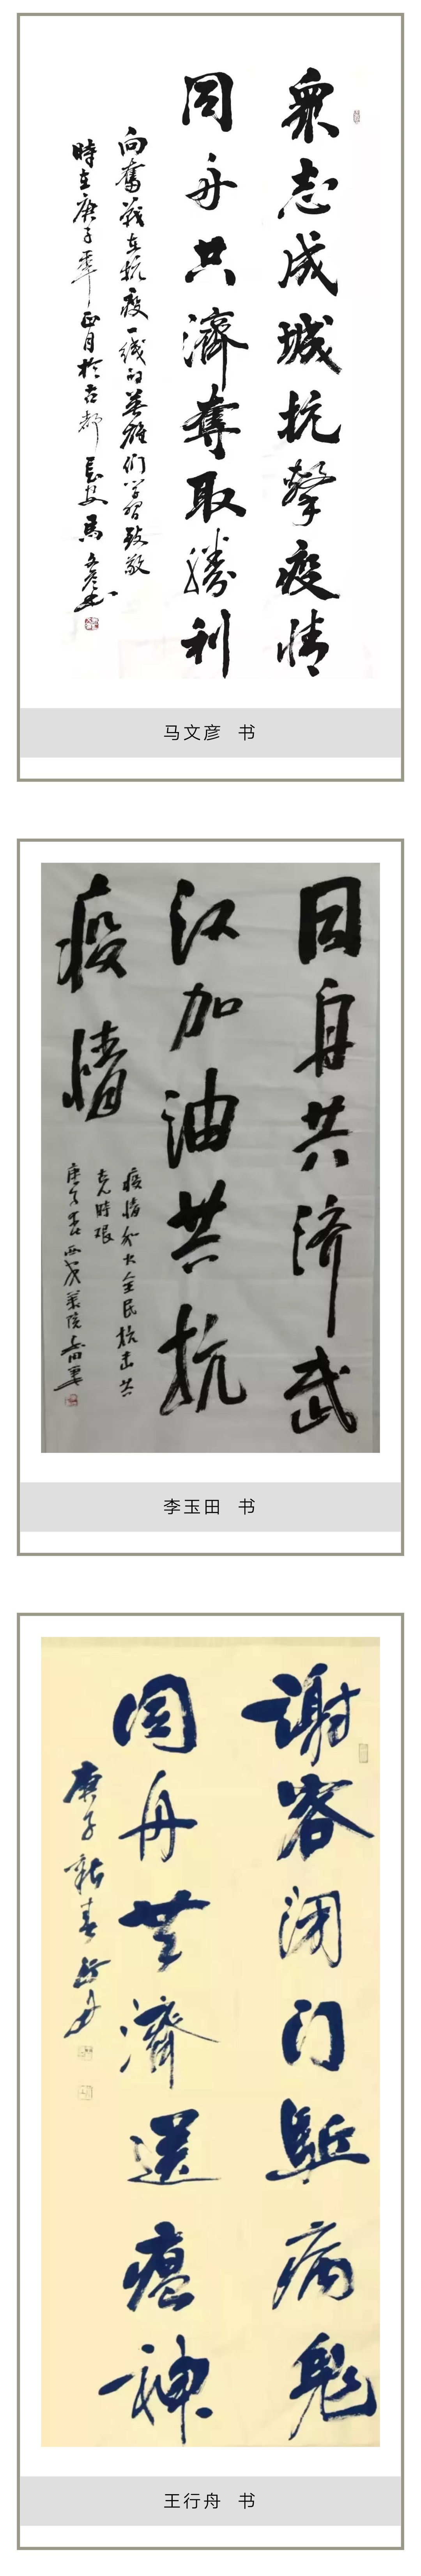 眾志成城抗擊疫情
同舟共濟奪取勝利
向奮戰在抗疫一线的英雄們学習致敬
時在庚子年正月於古都長安馬文彦书
马文彦 书
同舟共济武
汉加油共抗
疫情
疫情加大全民抗击共
克時艰
庚子春西安美院玉田墨
李玉田 书
謝客闭门駈病鬼
同舟共濟送瘟神
庚子新春行舟
王行舟 书